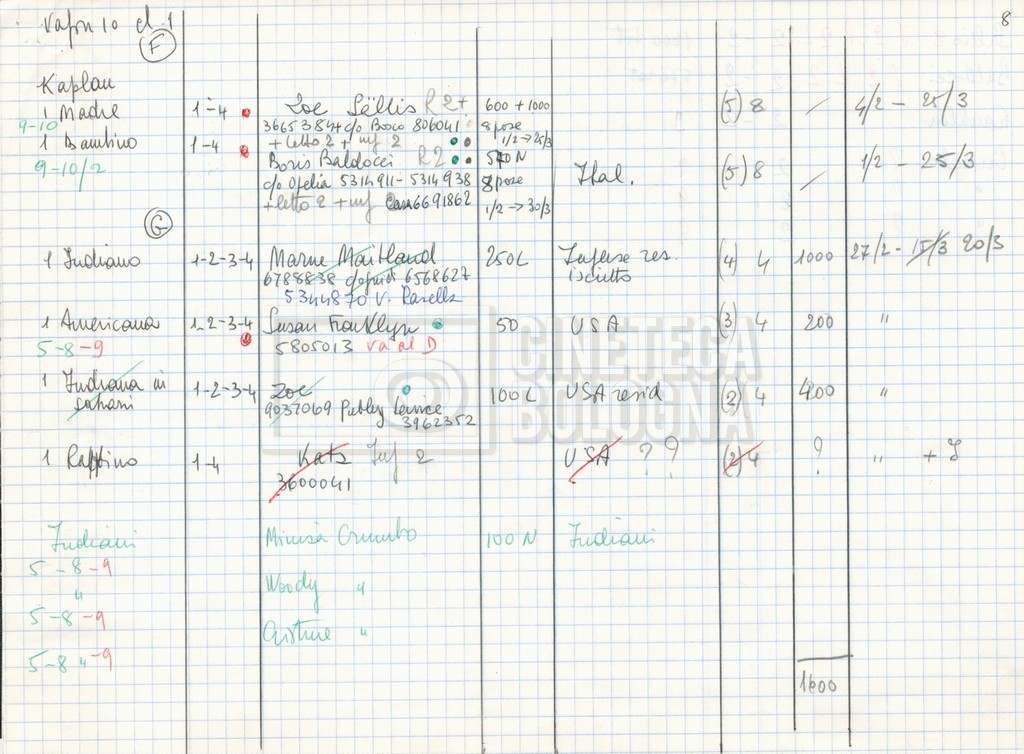 8
F
Kaplan
1 Madre 1-4 Zoe R2+ 600 + 1000 (5) 8 4/2 - 25/3
9-10 3665384 c/o Bosco 806041 8 pose
1 Bambino 1-4 + letto 2 + inf 2 1/2 → 25/3
9-10/2 Boris Baldocci R2 570 N Ital. (5) 8 1/2 - 25/3
c/o Ofelia 5314911 - 5314938 8 pose
+ letto 2 + inf Casa 6691862 1/2 → 30/3
G
1 Indiano 1-2-3-4 Marne Maitland 250 L Inglese res. (4) 4 1000 27/2 - 15/3 20/3
6788838 6568627 iscritto
5344870 V.
1 Americana 1-2-3-4 Susan Franklyn 50 USA (3) 4 200 "
5-8-9 5805013 va al D
1 Indiana in 1-2-3-4 Zoe 100 L USA resid (2) 4 400 "
9037069 3962352
1 1-4 Kats Inf 2 USA ? ? (2) 4 ? "
3600041
Indiani Crumbo 100 N Indiani
5-8-9
" Woody "
5-8-9
"
5-8-9 "
1600
CINETECA
BOLOGNA